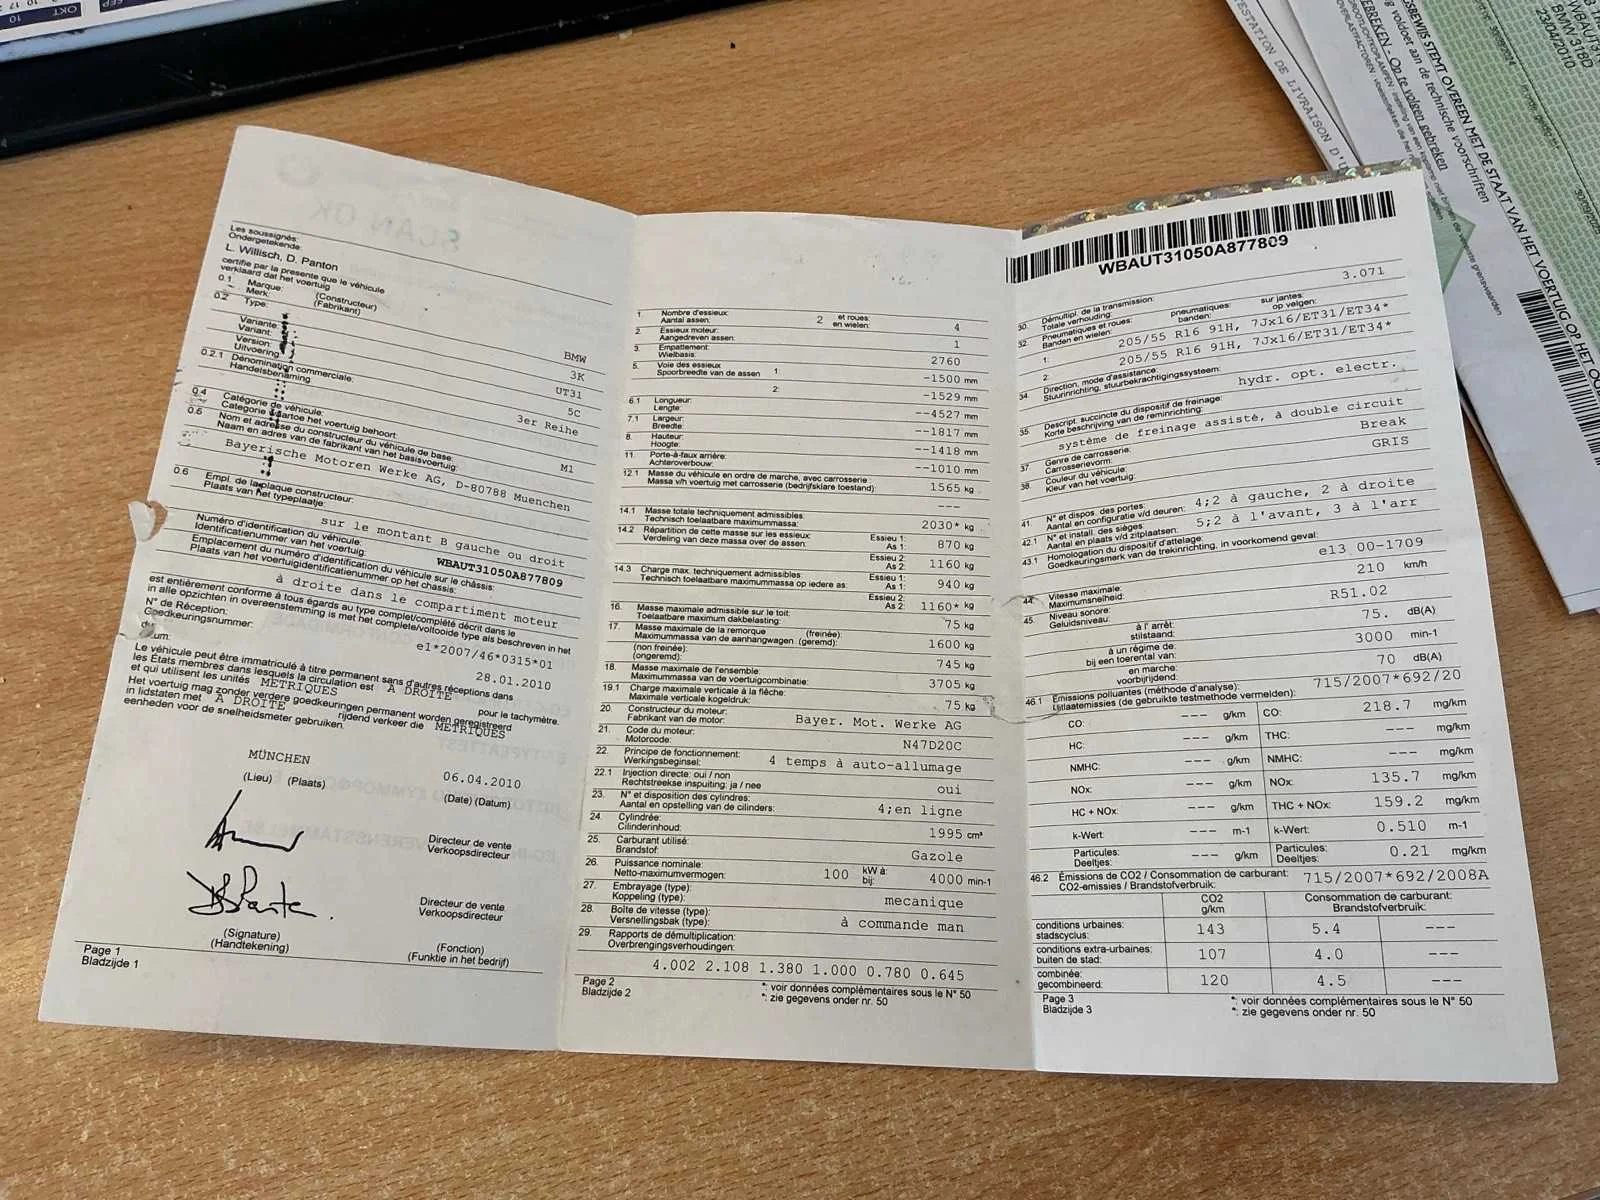 Les soussignés:
Ondergetekende:
L. Willisch, D. Panton
certifie par la presente que le véhicule
verklaard dat het voertuig
0.1 Marque: (Constructeur)
Merk: (Fabrikant) BMW
0.2 Type: 3K
Variante:
Variant: UT31
Version:
Uitvoering: 5C
0.2.1 Dénomination commerciale:
Handelsbenaming 3er Reihe
0.4 Catégorie de véhicule:
Categorie waartoe het voertuig behoort: M1
0.5 Nom et adresse du constructeur du véhicule de base:
Naam en adres van de fabrikant van het basisvoertuig:
Bayerische Motoren Werke AG, D-80788 Muenchen
0.6 Empl. de la plaque constructeur:
Plaats van het typeplaatje:
sur le montant B gauche ou droit
Numéro d'identification du véhicule:
Identificatienummer van het voertuig: WBAUT31050A877809
Emplacement du numéro d'identification du véhicule sur le châssis:
Plaats van het voertuigidentificatienummer op het chassis:
à droite dans le compartiment moteur
est entièrement conforme à tous égards au type complet/complété décrit dans le
in alle opzichten in overeenstemming is met het complete/voltooide type als beschreven in het
N° de Réception:
Goedkeuringsnummer: e1*2007/46*0315*01
du
28.01.2010
Le véhicule peut être immatriculé à titre permanent sans d'autres réceptions dans
les États membres dans lesquels la circulation est A DROITE
et qui utilisent les unités METRIQUES pour le tachymètre.
Het voertuig mag zonder verdere goedkeuringen permanent worden geregistreerd
in lidstaten met A DROITE rijdend verkeer die METRIQUES
eenheden voor de snelheidsmeter gebruiken.
MÜNCHEN 06.04.2010
(Lieu) (Plaats) (Date) (Datum)
Directeur de vente
Verkoopsdirecteur
Directeur de vente
Verkoopsdirecteur
(Signature) (Fonction)
(Handtekening) (Funktie in het bedrijf)
Page 1
Bladzijde 1
1. Nombre d'essieux: 2 et roues: 4
Aantal assen: en wielen:
2. Essieux moteur: 1
Aangedreven assen:
3. Empattement: 2760
Wielbasis:
5. Voie des essieux 1: -1500 mm
Spoorbreedte van de assen
2: -1529 mm
6.1 Longueur: --4527 mm
Lengte:
7.1 Largeur: --1817 mm
Breedte:
8. Hauteur: --1418 mm
Hoogte:
11. Porte-à-faux arrière: --1010 mm
Achteroverbouw:
12.1 Masse du véhicule en ordre de marche, avec carrosserie: 1565 kg
Massa v/h voertuig met carrosserie (bedrijfsklare toestand):
---
14.1 Masse totale techniquement admissibles: 2030* kg
Technisch toelaatbare maximummassa:
14.2 Répartition de cette masse sur les essieux: Essieu 1: 870 kg
Verdeling van deze massa over de assen: As 1:
Essieu 2: 1160 kg
As 2:
14.3 Charge max. techniquement admissibles Essieu 1: 940 kg
Technisch toelaatbare maximummassa op iedere as: As 1:
Essieu 2: 1160* kg
As 2:
16. Masse maximale admissible sur le toit: 75 kg
Toelaatbare maximum dakbelasting:
17. Masse maximale de la remorque (freinée): 1600 kg
Maximummassa van de aanhangwagen (geremd):
(non freinée) 745 kg
(ongeremd):
18. Masse maximale de l'ensemble: 3705 kg
Maximummassa van de voertuigcombinatie:
19.1 Charge maximale verticale à la flèche: 75 kg
Maximale verticale kogeldruk:
20. Constructeur du moteur: Bayer. Mot. Werke AG
Fabrikant van de motor:
21. Code du moteur: N47D20C
Motorcode:
22. Principe de fonctionnement: 4 temps à auto-allumage
Werkingsbeginsel:
22.1 Injection directe: oui / non oui
Rechtstreekse inspuiting: ja / nee
23. N° et disposition des cylindres: 4;en ligne
Aantal en opstelling van de cilinders:
24. Cylindrée: 1995 cm³
Cilinderinhoud:
25. Carburant utilisé: Gazole
Brandstof:
26. Puissance nominale: 100 kW à 4000 min-1
Netto-maximumvermogen: bij:
27. Embrayage (type): mecanique
Koppeling (type):
28. Boîte de vitesse (type): à commande man
Versnellingsbak (type):
29. Rapports de démultiplication:
Overbrengingsverhoudingen:
4.002 2.108 1.380 1.000 0.780 0.645
Page 2 *: voir données complémentaires sous le N° 50
Bladzijde 2 *: zie gegevens onder nr. 50
WBAUT31050A877809
30. Démultipl. de la transmission: 3.071
Totale verhouding:
32. Pneumatiques et roues: pneumatiques: sur jantes:
Banden en wielen: banden: op velgen:
1: 205/55 R16 91H, 7Jx16/ET31/ET34*
2: 205/55 R16 91H, 7Jx16/ET31/ET34*
34. Direction, mode d'assistance: hydr. opt. electr.
Stuurinrichting, stuurbekrachtigingssysteem:
35. Descript. succincte du dispositif de freinage:
Korte beschrijving van de reminrichting:
système de freinage assisté, à double circuit
37. Genre de carrosserie: Break
Carrosserievorm:
38. Couleur du véhicule: GRIS
Kleur van het voertuig:
41. N° et dispos. des portes: 4;2 à gauche, 2 à droite
Aantal en configuratie v/d deuren:
42.1 N° et install. des sièges: 5;2 à l'avant, 3 à l'arr
Aantal en plaats v/d zitplaatsen:
43.1 Homologation du dispositif d'attelage:
Goedkeuringsmerk van de trekinrichting, in voorkomend geval: e13 00-1709
44. Vitesse maximale: 210 km/h
Maximumsnelheid:
45. Niveau sonore: R51.02
Geluidsniveau:
à l' arrêt: 75. dB(A)
stilstaand:
à un régime de: 3000 min-1
bij een toerental van:
en marche: 70 dB(A)
voorbijrijdend:
46.1 Émissions polluantes (méthode d'analyse): 715/2007*692/20
Uitlaatemissies (de gebruikte testmethode vermelden):
CO: --- g/km CO: 218.7 mg/km
HC: --- g/km THC: --- mg/km
NMHC: --- g/km NMHC: --- mg/km
NOx: --- g/km NOx: 135.7 mg/km
HC + NOx: --- g/km THC + NOx: 159.2 mg/km
k-Wert: --- m-1 k-Wert: 0.510 m-1
Particules: --- g/km Particules: 0.21 mg/km
Deeltjes: Deeltjes:
46.2 Émissions de CO2 / Consommation de carburant: 715/2007*692/2008A
CO2-emissies / Brandstofverbruik:
CO2 Consommation de carburant:
g/km Brandstofverbruik:
conditions urbaines: 143 5.4 ---
stadscyclus:
conditions extra-urbaines: 107 4.0 ---
buiten de stad:
combinée: 120 4.5 ---
gecombineerd:
Page 3 *: voir données complémentaires sous le N° 50
Bladzijde 3 *: zie gegevens onder nr. 50
OKT
10
BMW 318D
23/04/2010